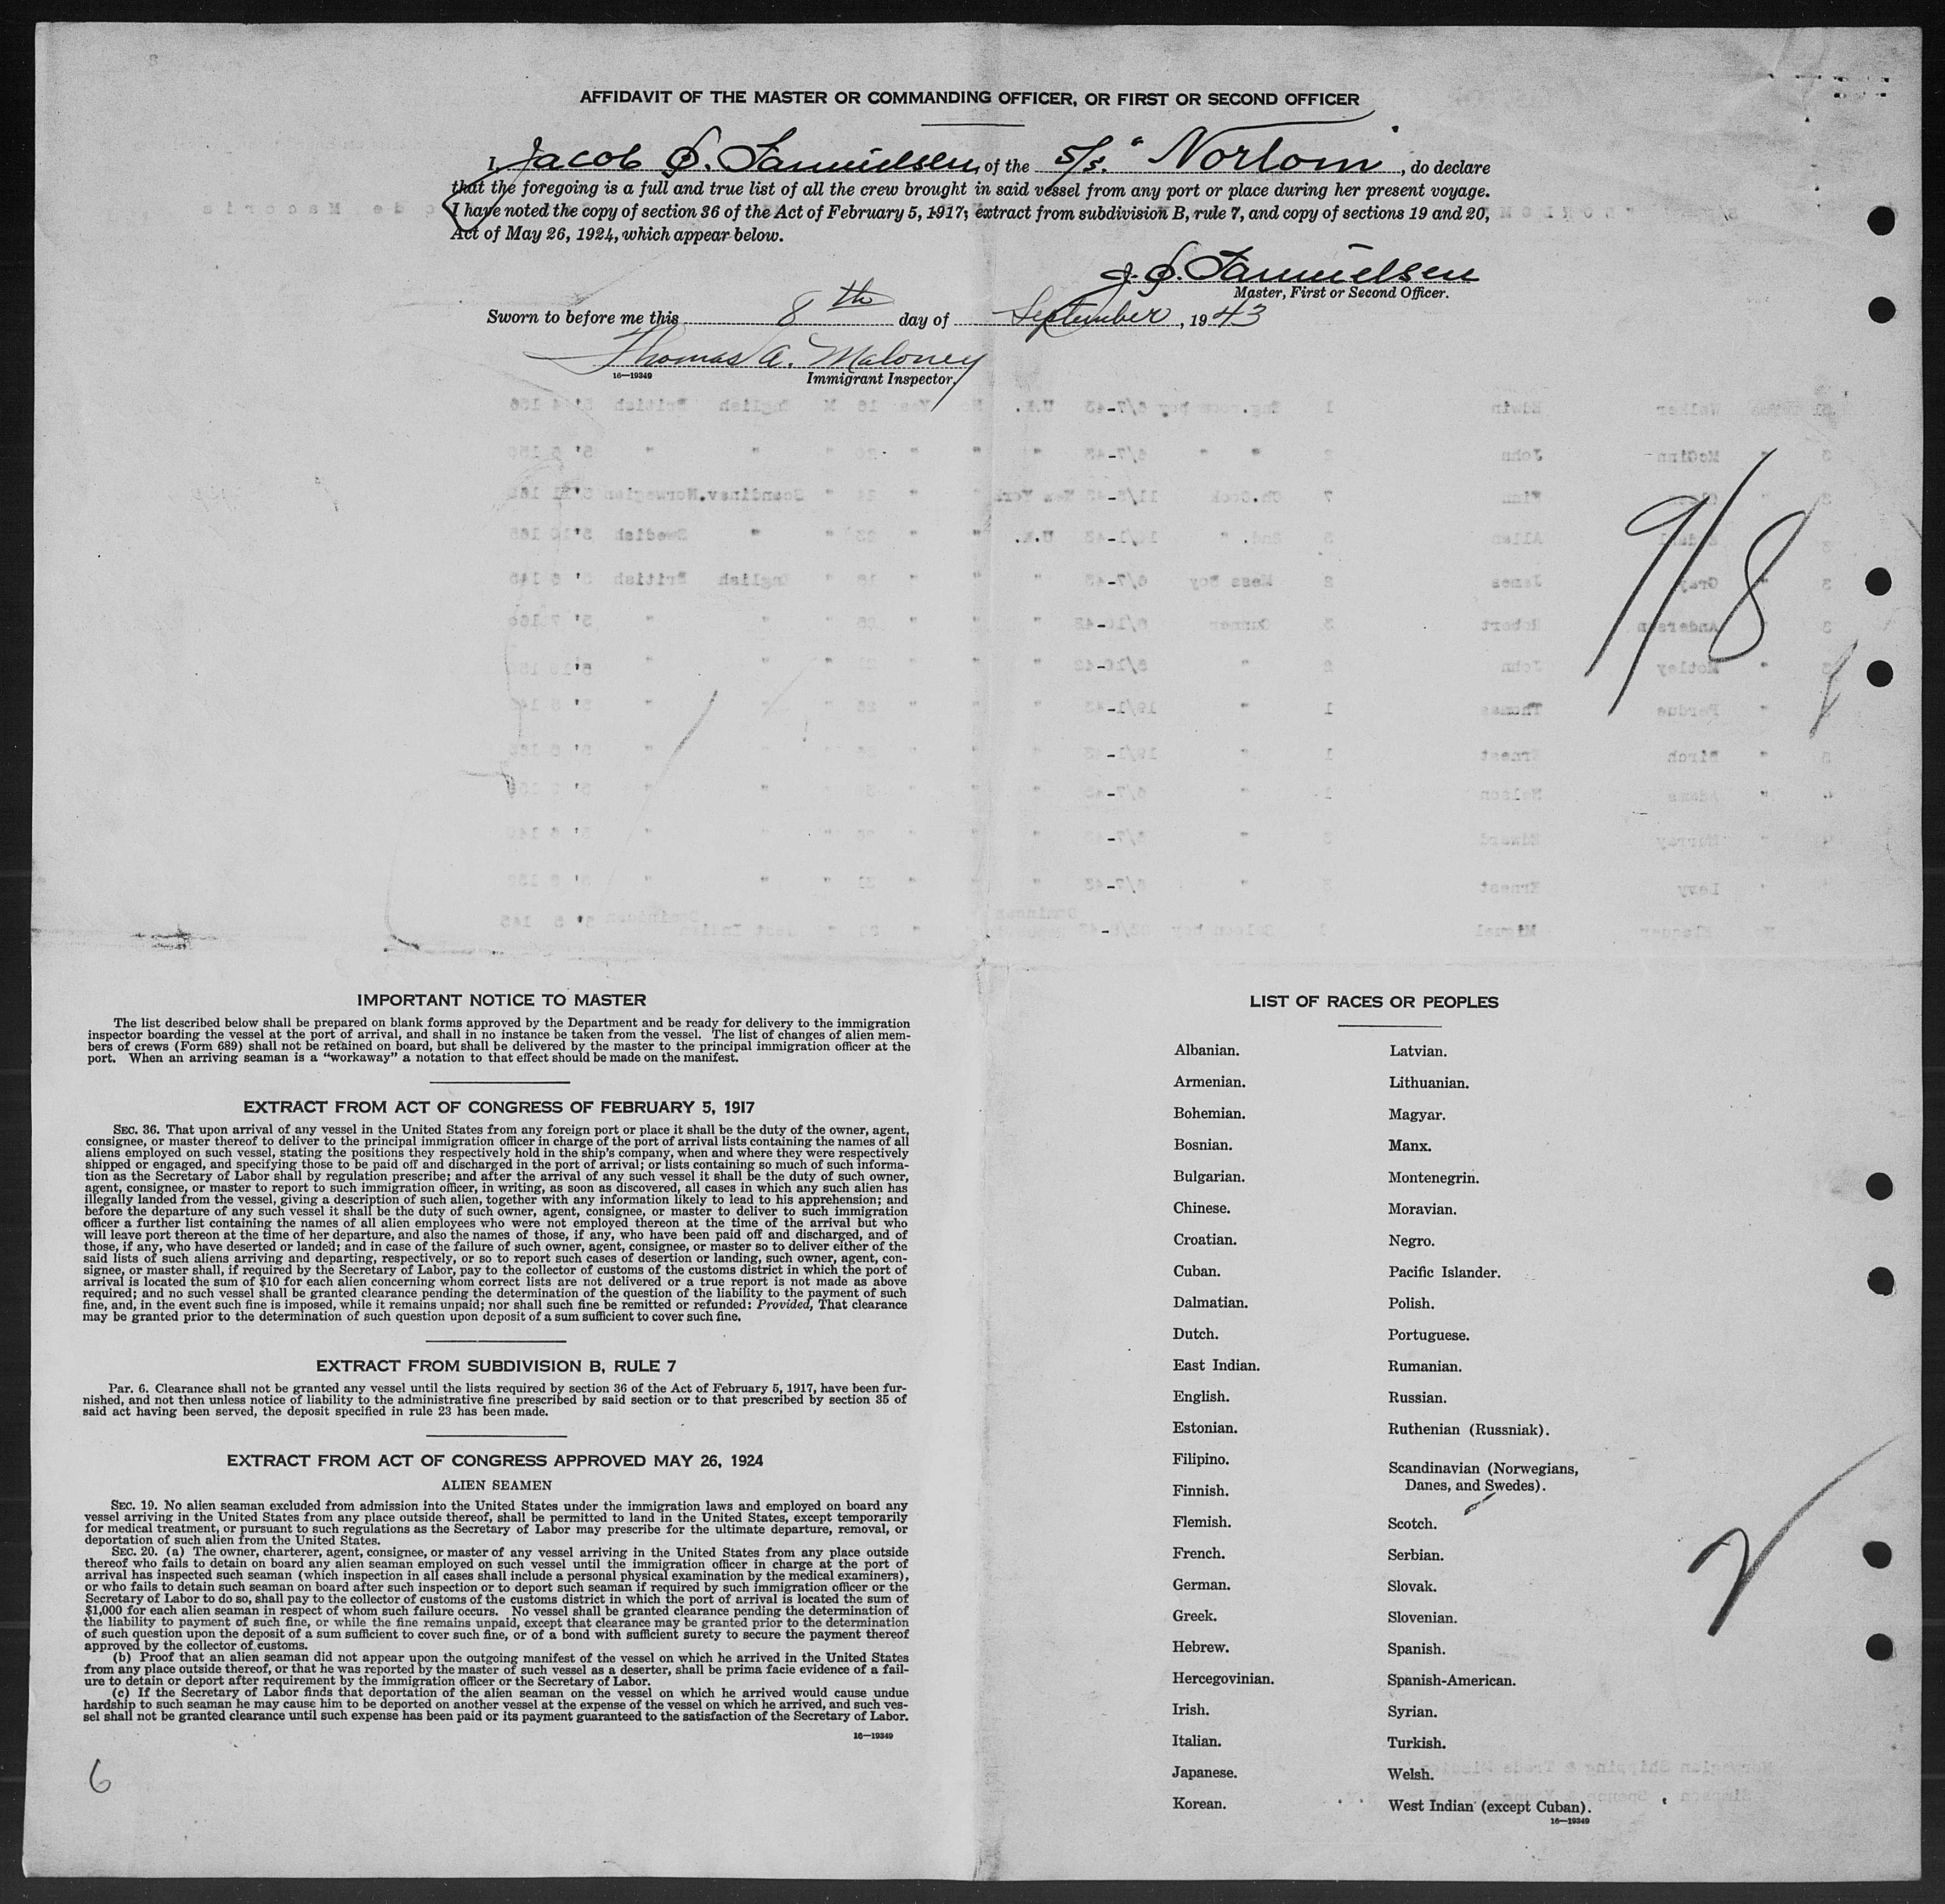 AFFIDAVIT OF THE MASTER OR COMMANDING OFFICER, OR FIRST OR SECOND OFFICER
I, Jacob S. Samuelsen, of the S/S. "Norlom", do declare
that the foregoing is a full and true list of all the crew brought in said vessel from any port or place during her present voyage.
I have noted the copy of section 36 of the Act of February 5, 1917; extract from subdivision B, rule 7, and copy of sections 19 and 20,
Act of May 26, 1924, which appear below.
J. S. Samuelsen
Master, First or Second Officer.
Sworn to before me this 8th day of September, 1943
Thomas A. Maloney
16—19349 Immigrant Inspector.
9/8
IMPORTANT NOTICE TO MASTER
The list described below shall be prepared on blank forms approved by the Department and be ready for delivery to the immigration
inspector boarding the vessel at the port of arrival, and shall in no instance be taken from the vessel. The list of changes of alien mem-
bers of crews (Form 689) shall not be retained on board, but shall be delivered by the master to the principal immigration officer at the
port. When an arriving seaman is a "workaway" a notation to that effect should be made on the manifest.
EXTRACT FROM ACT OF CONGRESS OF FEBRUARY 5, 1917
SEC. 36. That upon arrival of any vessel in the United States from any foreign port or place it shall be the duty of the owner, agent,
consignee, or master thereof to deliver to the principal immigration officer in charge of the port of arrival lists containing the names of all
aliens employed on such vessel, stating the positions they respectively hold in the ship's company, when and where they were respectively
shipped or engaged, and specifying those to be paid off and discharged in the port of arrival; or lists containing so much of such informa-
tion as the Secretary of Labor shall by regulation prescribe; and after the arrival of any such vessel it shall be the duty of such owner,
agent, consignee, or master to report to such immigration officer, in writing, as soon as discovered, all cases in which any such alien has
illegally landed from the vessel, giving a description of such alien, together with any information likely to lead to his apprehension; and
before the departure of any such vessel it shall be the duty of such owner, agent, consignee, or master to deliver to such immigration
officer a further list containing the names of all alien employees who were not employed thereon at the time of the arrival but who
will leave port thereon at the time of her departure, and also the names of those, if any, who have been paid off and discharged, and of
those, if any, who have deserted or landed; and in case of the failure of such owner, agent, consignee, or master so to deliver either of the
said lists of such aliens arriving and departing, respectively, or so to report such cases of desertion or landing, such owner, agent, con-
signee, or master shall, if required by the Secretary of Labor, pay to the collector of customs of the customs district in which the port of
arrival is located the sum of $10 for each alien concerning whom correct lists are not delivered or a true report is not made as above
required; and no such vessel shall be granted clearance pending the determination of the question of the liability to the payment of such
fine, and, in the event such fine is imposed, while it remains unpaid; nor shall such fine be remitted or refunded: Provided, That clearance
may be granted prior to the determination of such question upon deposit of a sum sufficient to cover such fine.
EXTRACT FROM SUBDIVISION B, RULE 7
PAR. 6. Clearance shall not be granted any vessel until the lists required by section 36 of the Act of February 5, 1917, have been fur-
nished, and not then unless notice of liability to the administrative fine prescribed by said section or to that prescribed by section 35 of
said act having been served, the deposit specified in rule 23 has been made.
EXTRACT FROM ACT OF CONGRESS APPROVED MAY 26, 1924
ALIEN SEAMEN
SEC. 19. No alien seaman excluded from admission into the United States under the immigration laws and employed on board any
vessel arriving in the United States from any place outside thereof, shall be permitted to land in the United States, except temporarily
for medical treatment, or pursuant to such regulations as the Secretary of Labor may prescribe for the ultimate departure, removal, or
deportation of such alien from the United States.
SEC. 20. (a) The owner, charterer, agent, consignee, or master of any vessel arriving in the United States from any place outside
thereof who fails to detain on board any alien seaman employed on such vessel until the immigration officer in charge at the port of
arrival has inspected such seaman (which inspection in all cases shall include a personal physical examination by the medical examiners),
or who fails to detain such seaman on board after such inspection or to deport such seaman if required by such immigration officer or the
Secretary of Labor to do so, shall pay to the collector of customs of the customs district in which the port of arrival is located the sum of
$1,000 for each alien seaman in respect of whom such failure occurs. No vessel shall be granted clearance pending the determination of
the liability to payment of such fine, or while the fine remains unpaid, except that clearance may be granted prior to the determination
of such question upon the deposit of a sum sufficient to cover such fine, or of a bond with sufficient surety to secure the payment thereof
approved by the collector of customs.
(b) Proof that an alien seaman did not appear upon the outgoing manifest of the vessel on which he arrived in the United States
from any place outside thereof, or that he was reported by the master of such vessel as a deserter, shall be prima facie evidence of a fail-
ure to detain or deport after requirement by the immigration officer or the Secretary of Labor.
(c) If the Secretary of Labor finds that deportation of the alien seaman on the vessel on which he arrived would cause undue
hardship to such seaman he may cause him to be deported on another vessel at the expense of the vessel on which he arrived, and such ves-
sel shall not be granted clearance until such expense has been paid or its payment guaranteed to the satisfaction of the Secretary of Labor.
16—19349
6
LIST OF RACES OR PEOPLES
Albanian.
Armenian.
Bohemian.
Bosnian.
Bulgarian.
Chinese.
Croatian.
Cuban.
Dalmatian.
Dutch.
East Indian.
English.
Estonian.
Filipino.
Finnish.
Flemish.
French.
German.
Greek.
Hebrew.
Hercegovinian.
Irish.
Italian.
Japanese.
Korean.
Latvian.
Lithuanian.
Magyar.
Manx.
Montenegrin.
Moravian.
Negro.
Pacific Islander.
Polish.
Portuguese.
Rumanian.
Russian.
Ruthenian (Russniak).
Scandinavian (Norwegians,
Danes, and Swedes).
Scotch.
Serbian.
Slovak.
Slovenian.
Spanish.
Spanish-American.
Syrian.
Turkish.
Welsh.
West Indian (except Cuban).
16—19349